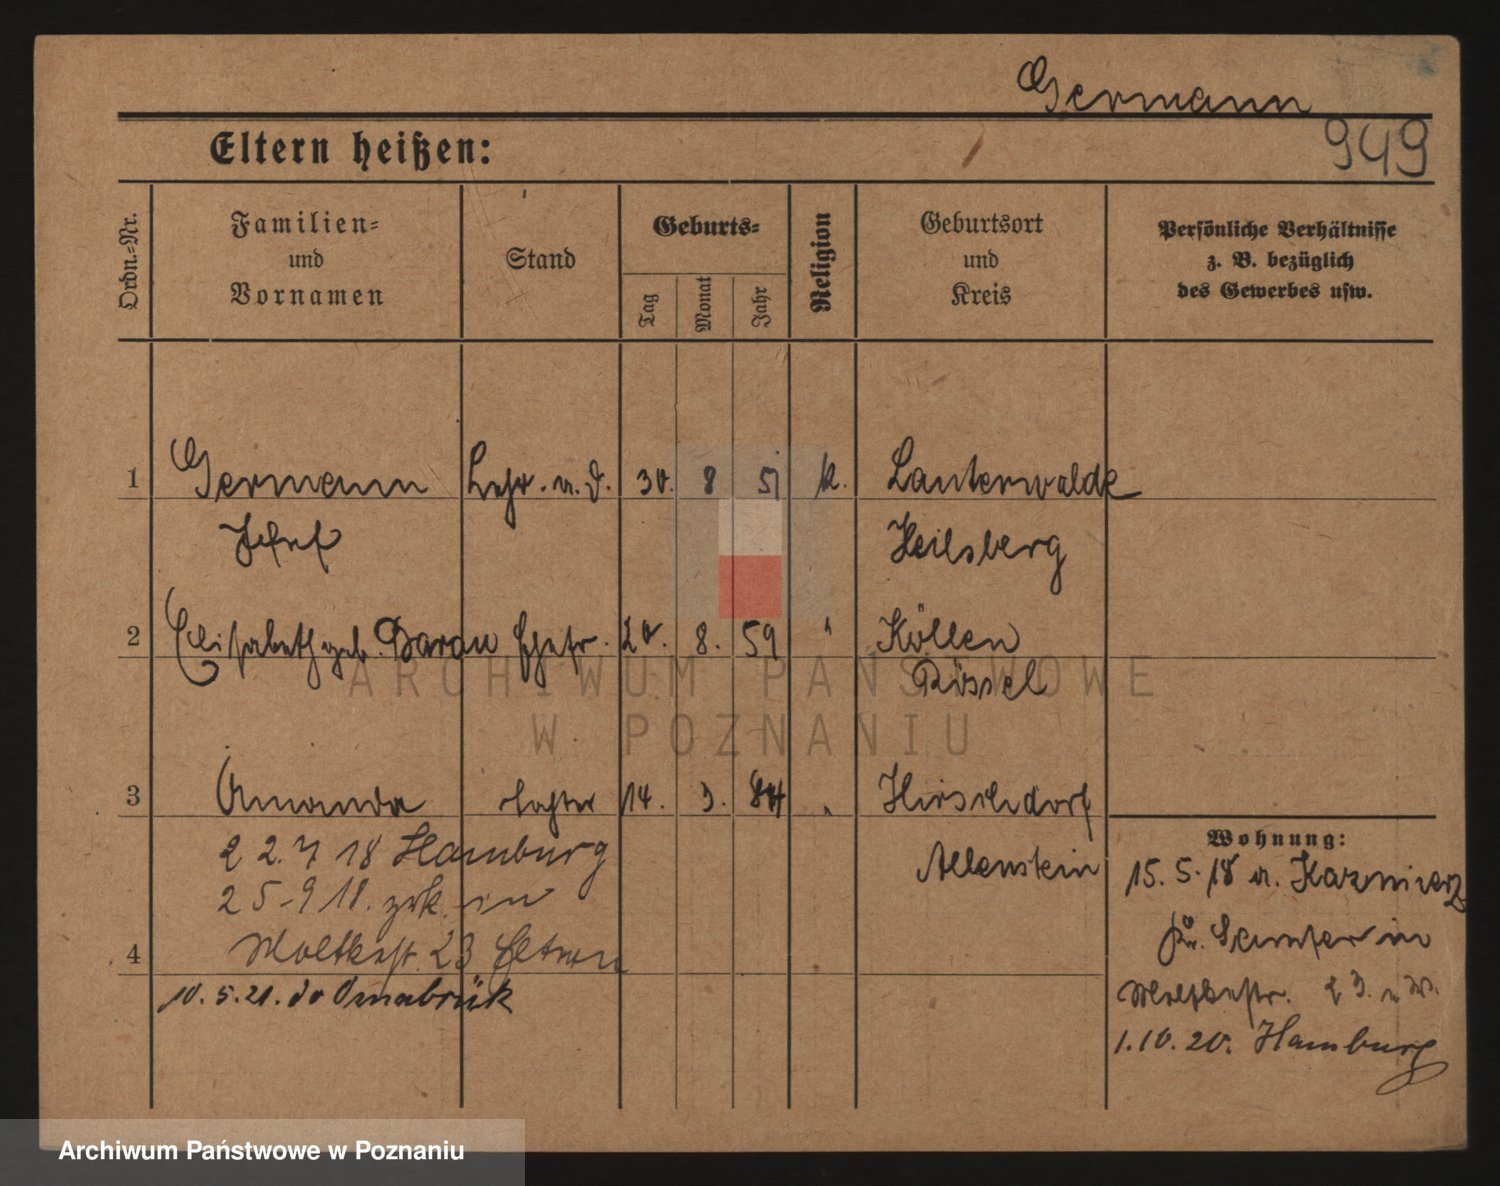 Germann
949
Eltern heißen:
Ordn.-Nr.
Familien-
und
Vornamen
Stand
Geburts-
Tag
Monat
Jahr
Religion
Geburtsort
und
Kreis
Persönliche Verhältnisse
z. B. bezüglich
des Gewerbes usw.
1 Germann Lehr. a. D. 30. 8 51 k. Lauterwalde
Josef Heilsberg
2 Elisabeth geb. Barau Ehefr. 20. 8. 59 " Köllen
Rössel
3 Amanda Tochter 14. 3. 84 " Hirschdorf
Allenstein
22. 7 18 Hamburg
25-9 18. zrk. in
Moltkestr. 23 Eltern
4
10. 5. 21. Osnabrück
Wohnung:
15. 5. 18 a. Kazmierz
Kr. Samter in
Moltkestr. 23.
1. 10. 20. Hamburg
ARCHIWUM PAŃSTWOWE
W POZNANIU
Archiwum Państwowe w Poznaniu